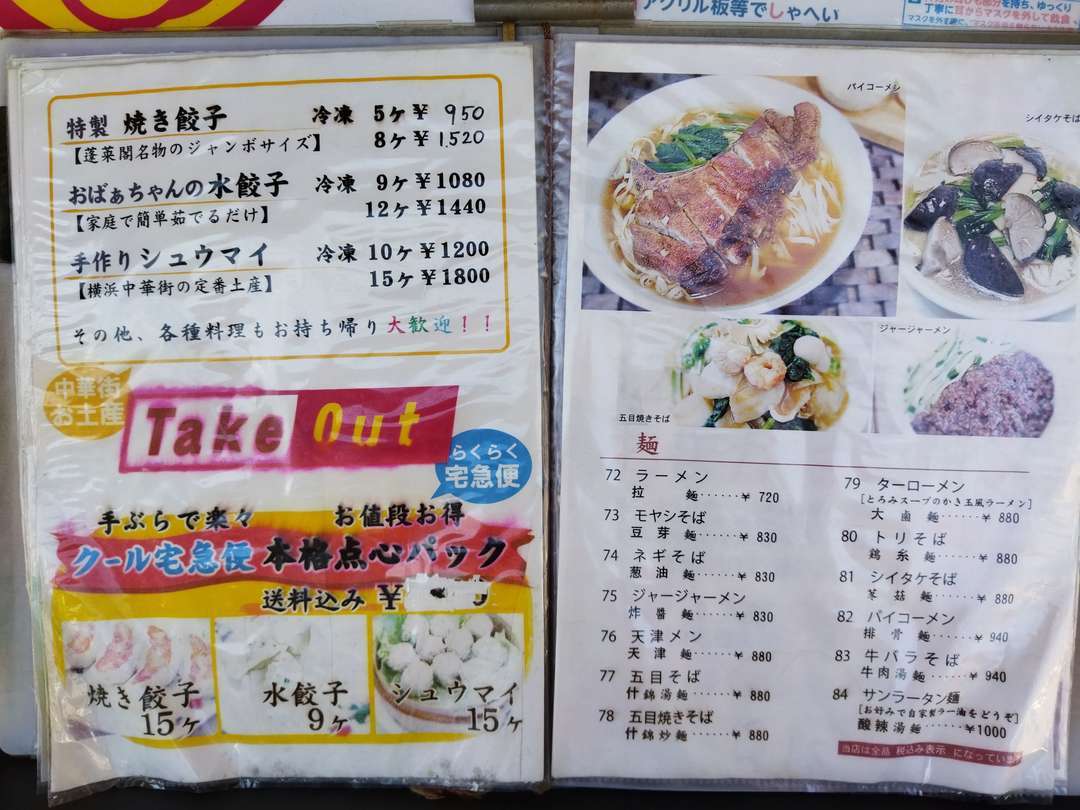 アクリル板等でしゃへい
丁寧に
マスクを外して飲食、
特製 焼き餃子 冷凍 5ケ¥ 950
【蓬莱閣名物のジャンボサイズ】 8ケ¥1,520
おばぁちゃんの水餃子 冷凍 9ケ¥1080
【家庭で簡単茹でるだけ】 12ケ¥1440
手作りシュウマイ 冷凍 10ケ¥1200
【横浜中華街の定番土産】 15ケ¥1800
その他、各種料理もお持ち帰り大歓迎!!
中華街
お土産
Take Out
らくらく
宅急便
手ぶらで楽々 お値段お得
クール宅急便 本格点心パック
送料込み ¥
焼き餃子
15ケ
水餃子
9ケ
シュウマイ
15ケ
パイコーメン
シイタケそば
五目焼きそば
ジャージャーメン
麺
72 ラーメン
拉 麺……¥ 720
73 モヤシそば
豆芽 麺……¥ 830
74 ネギそば
葱油 麺……¥ 830
75 ジャージャーメン
炸醤 麺……¥ 880
76 天津メン
天津 麺……¥ 880
77 五目そば
什錦湯麺……¥ 880
78 五目焼きそば
什錦炒麺……¥ 880
79 ターローメン
[とろみスープのかき玉風ラーメン]
大鹵麺……¥ 880
80 トリそば
鶏糸麺……¥ 880
81 シイタケそば
茸菇麺……¥ 880
82 パイコーメン
排骨麺……¥ 940
83 牛バラそば
牛肉湯麺……¥ 940
84 サンラータン麺
[お好みで自家製ラー油をどうぞ]
酸辣湯麺……¥1000
当店は全品 税込み表示 になってい